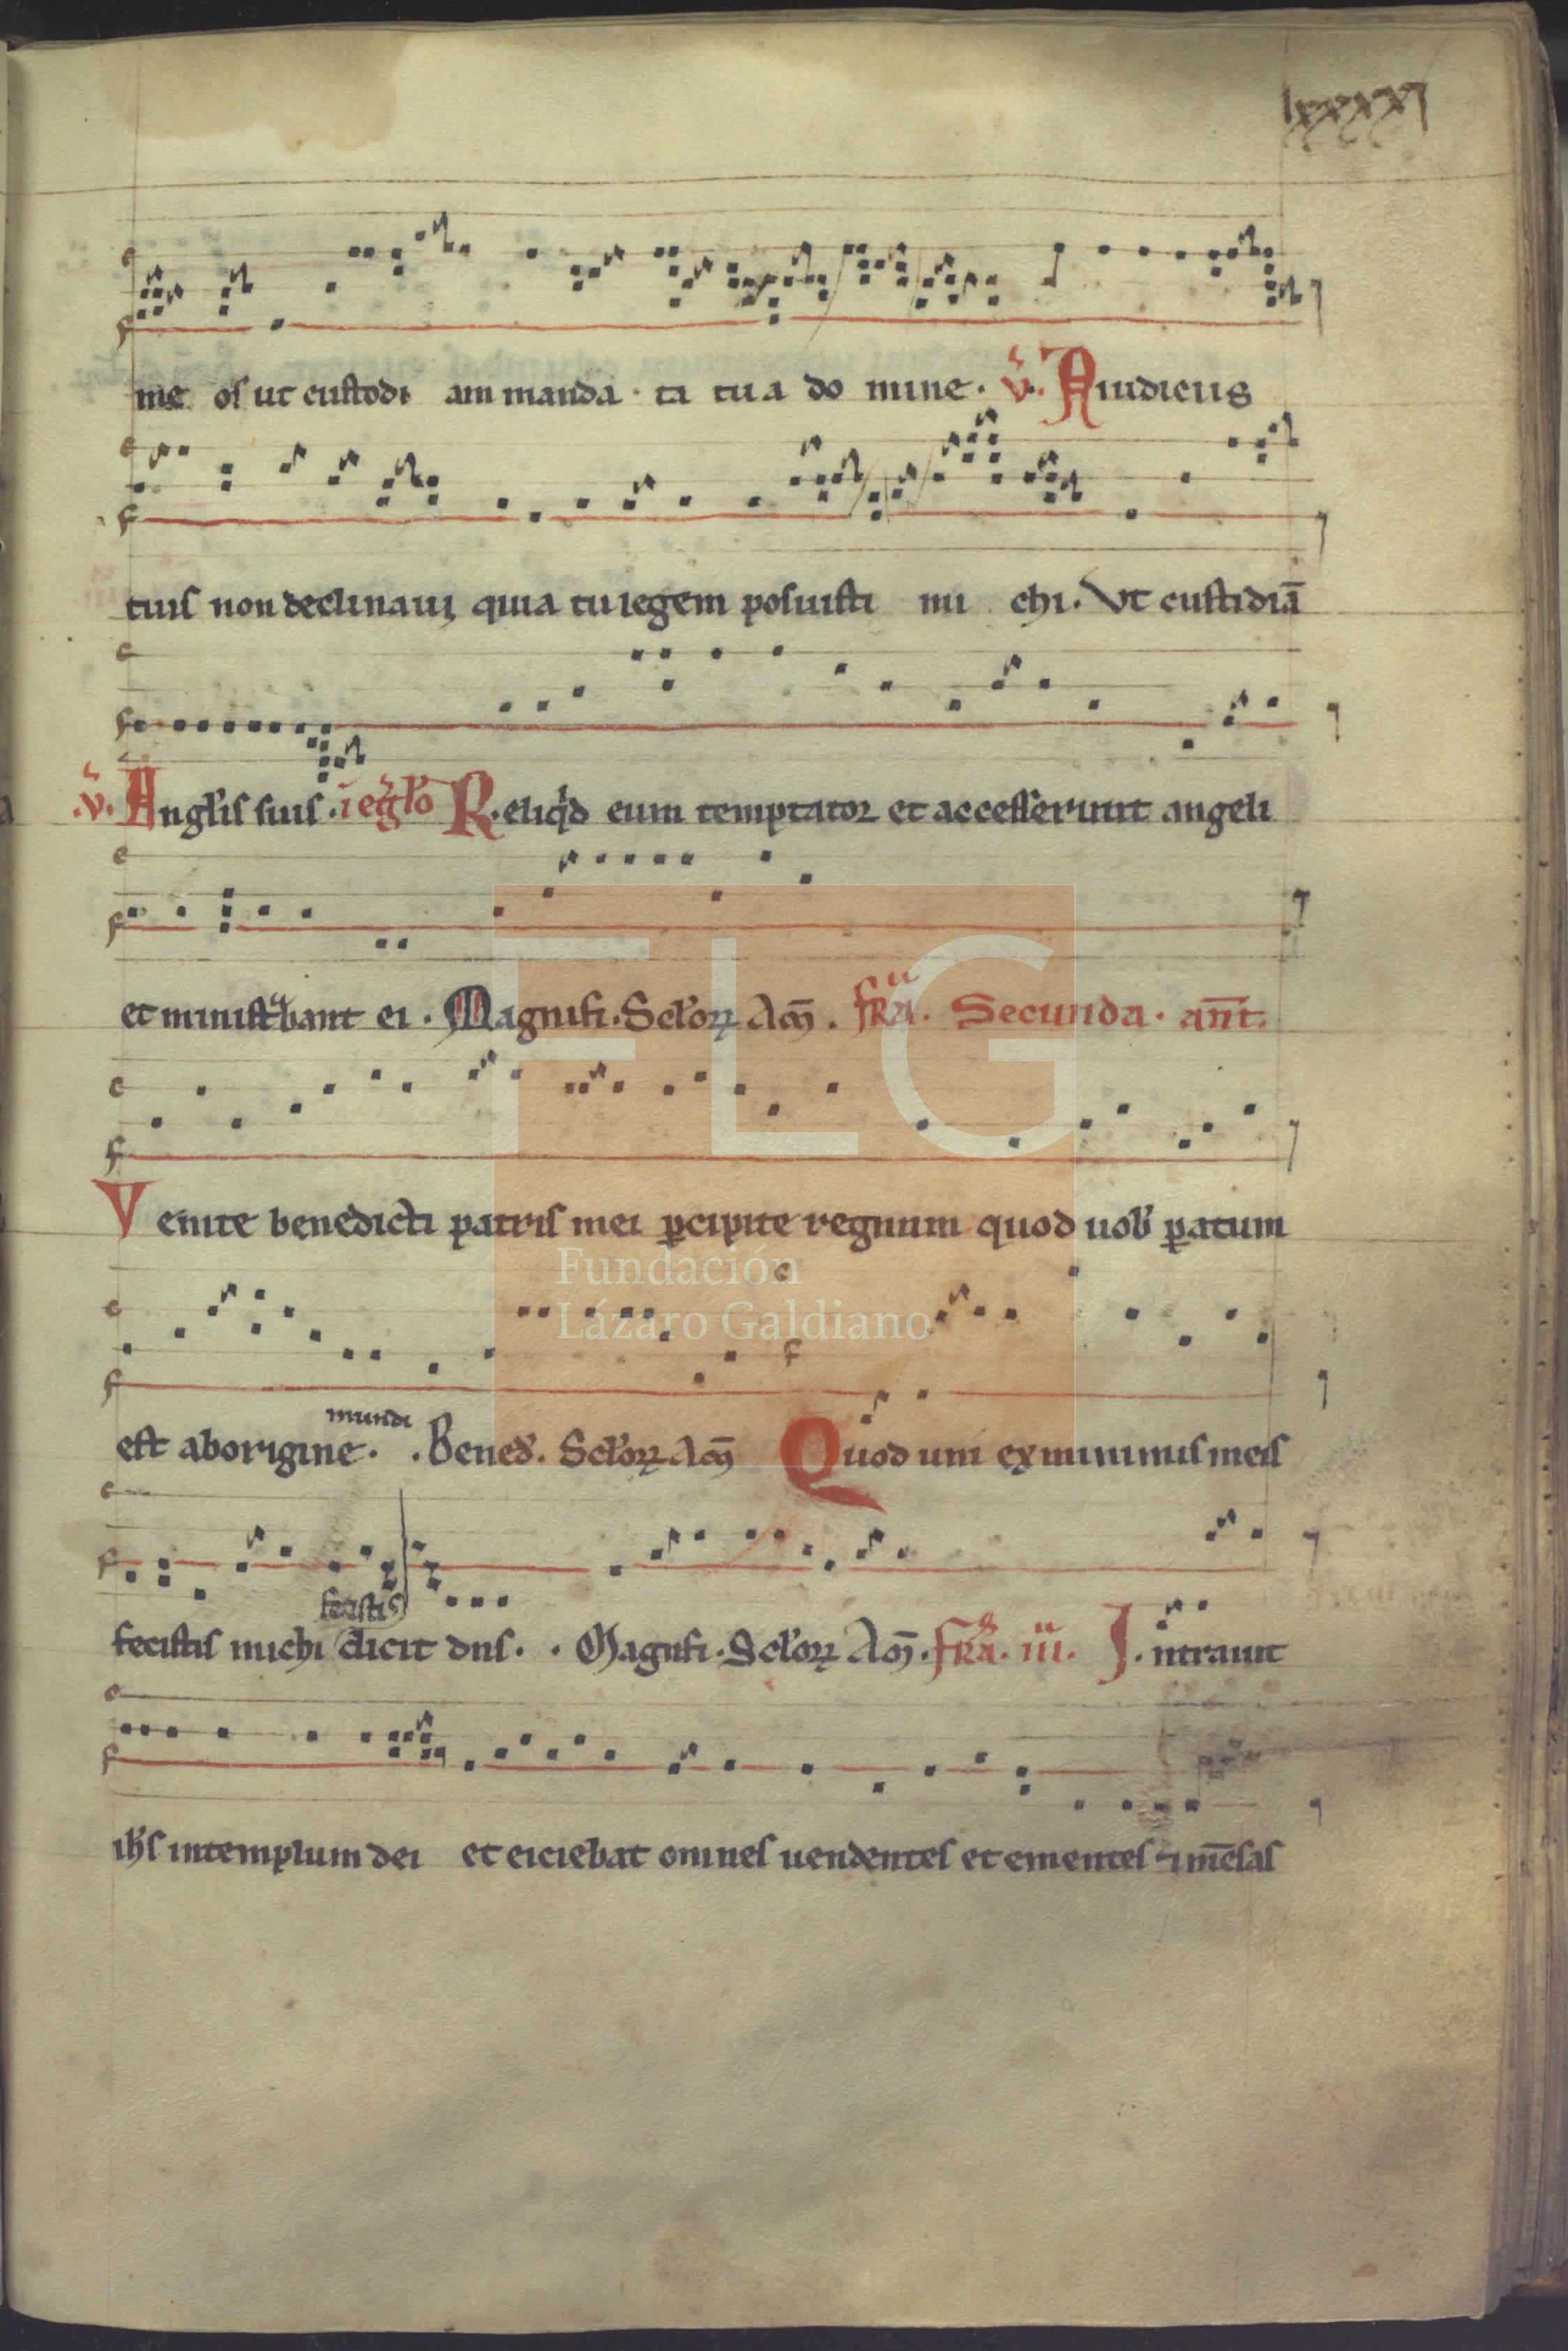 lxxxxi
me os ut custodi am manda ta tua do mine. v̄. A iudiciis
tuis non declinaui quia tu legem posuisti mi chi. Vt custidiā
.v̄. Anglis suis. R. eliqͥd eum temptator et accesserunt angeli
et minist͛bant ei. Magnifi. Sclorꝝ Am̄. frā. ii Secunda. ant̄.
Venite benedicti patris mei ꝑcipite regnum quod uob ꝑatum
est aborigine. mundi . Bened. Sclorꝝ Am̄ Quod uni ex minimis meis
fecistis michi dicit dns. . Magnifi. Sclorꝝ Am̄. frā. iii. I. ntrauit
ihs intemplum dei et eiciebat omnes uendentes et ementes ⁊ mēsas
FLG
Fundación
Lázaro Galdiano